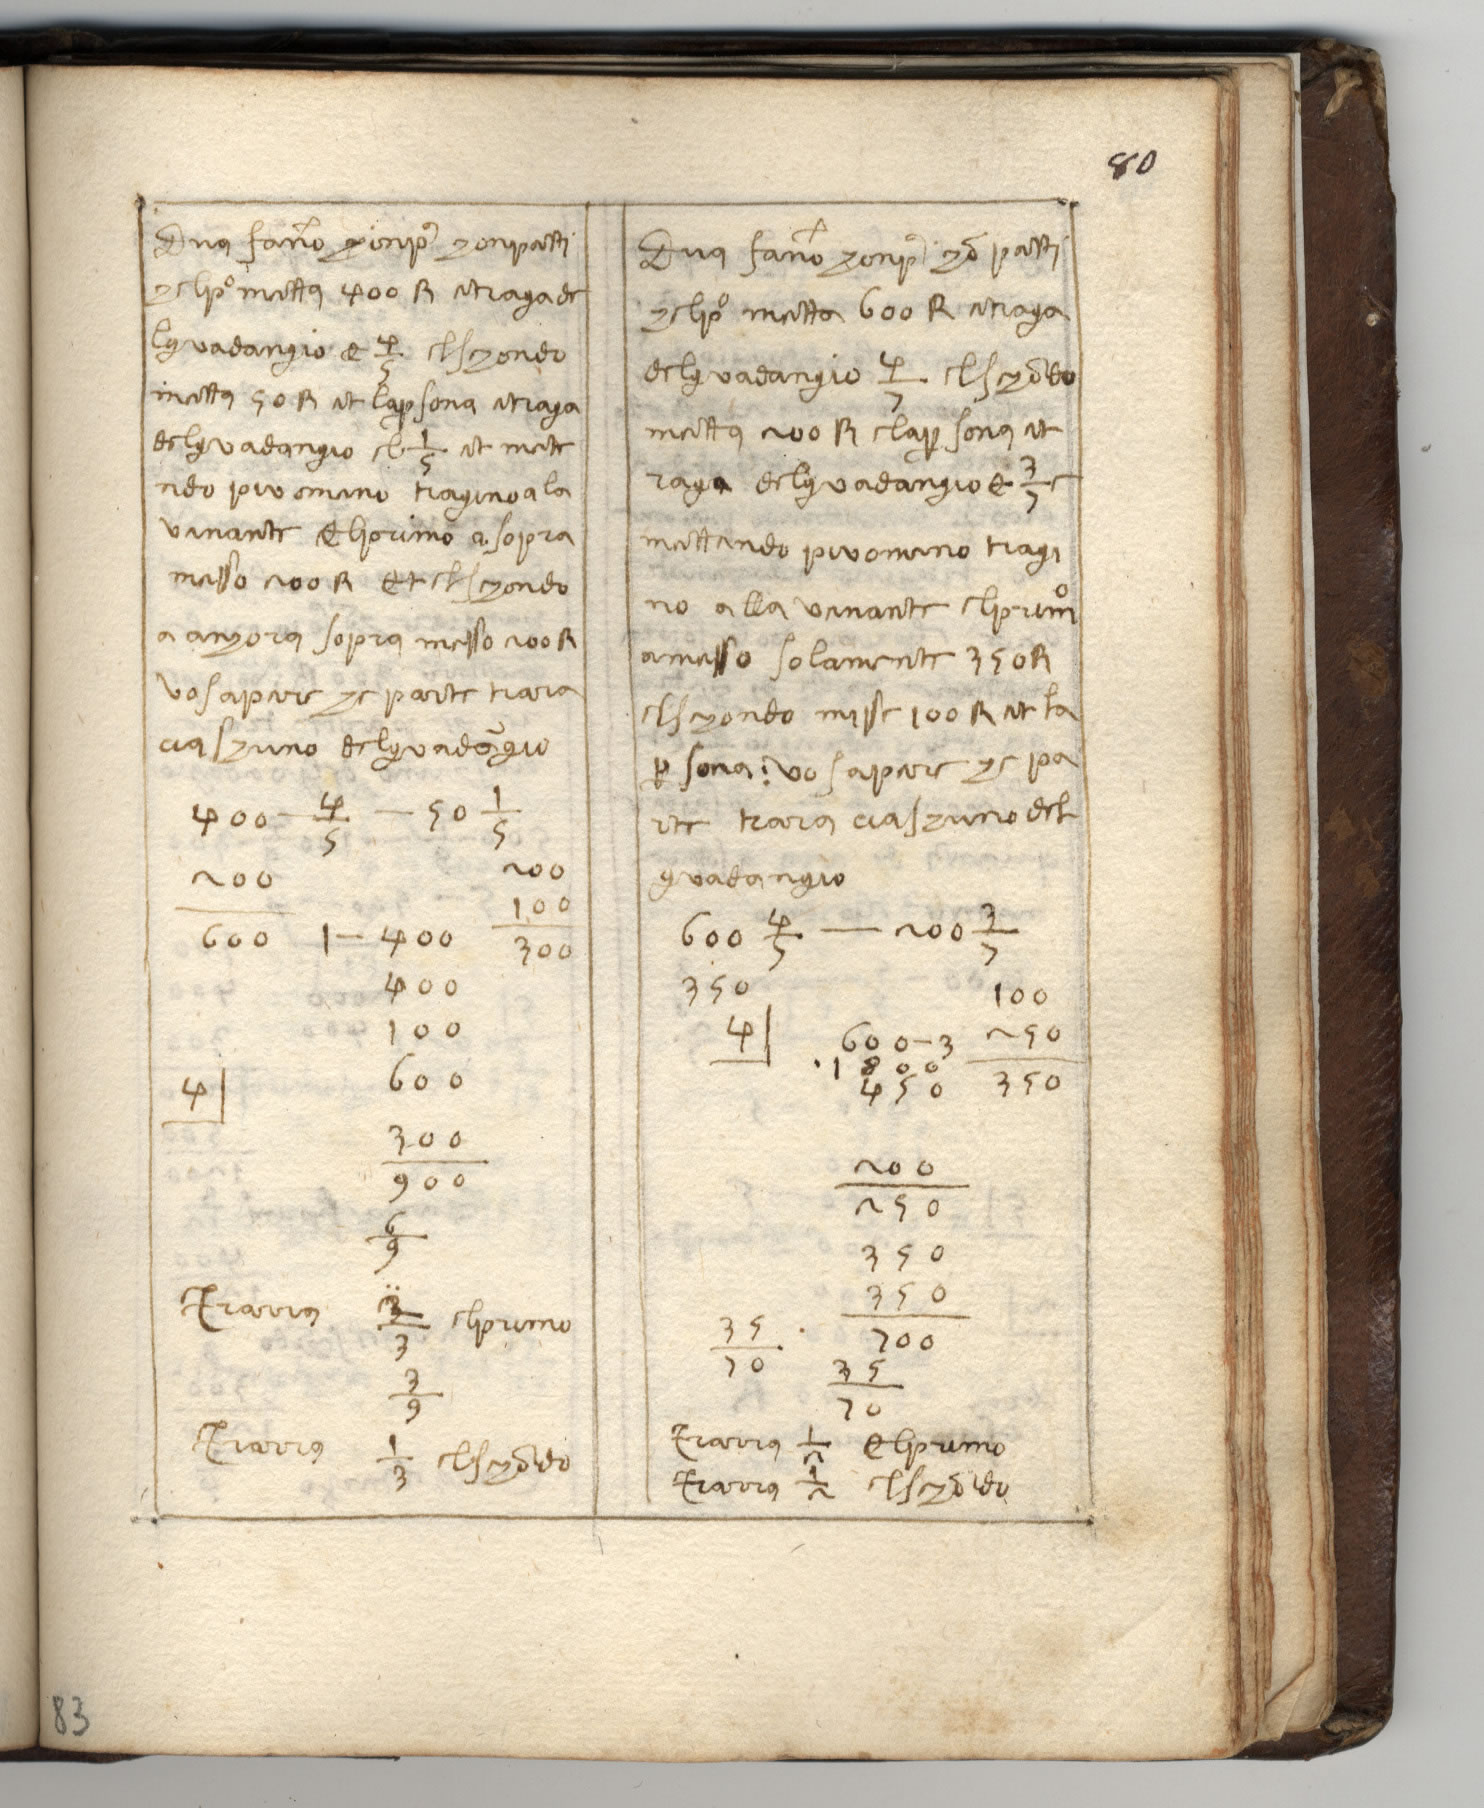 80
Dua fano conpa con patti
che lpo metta 400 R et traga de
lguadangio e 4/5 elsecondo
metta 50 R et lapersona etraga
delguadangio el 1/5 et mete
ndo piu omeno tragino a la
venante elprimo a sopra
messo 200 R et elsecondo
a ancora sopra messo 200 R
vo sapere che parte trara
ciascuno delguadangio
400 — 4/5 — 50 1/5
200 200
100
600 1 — 400 300
400
100
600
4
300
900
6/9
Trarra 2/3 elprimo
3/9
Trarra 1/3 elsecōdo
Dua fano conpa cō patti
che lpo metta 600 R etraga
delguadangio 4/7 elsecōdo
metta 200 R elapersona et
raga delguadangio e 3/7 e
mettendo piu omeno tragi
no alla venante elprimo
a messo solamente 350 R
elsecondo misse 100 R et la
persona: vo sapere che pa
rte trara ciascuno del
guadangio
600 4/7 — 200 3/7
350 100
4 600 — 3 250
1800
450 350
200
250
350
350
35/70 700
35/70
Trarra 1/2 elprimo
Trarra 1/2 elsecōdo
83